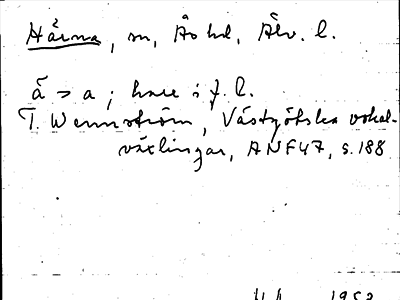 Härna, m, Ås hd, Älv. l.
ä > a; hare i f. l.
T. Wennström, Västgötska vokal-
växlingar, ANF 47, s. 188
1952